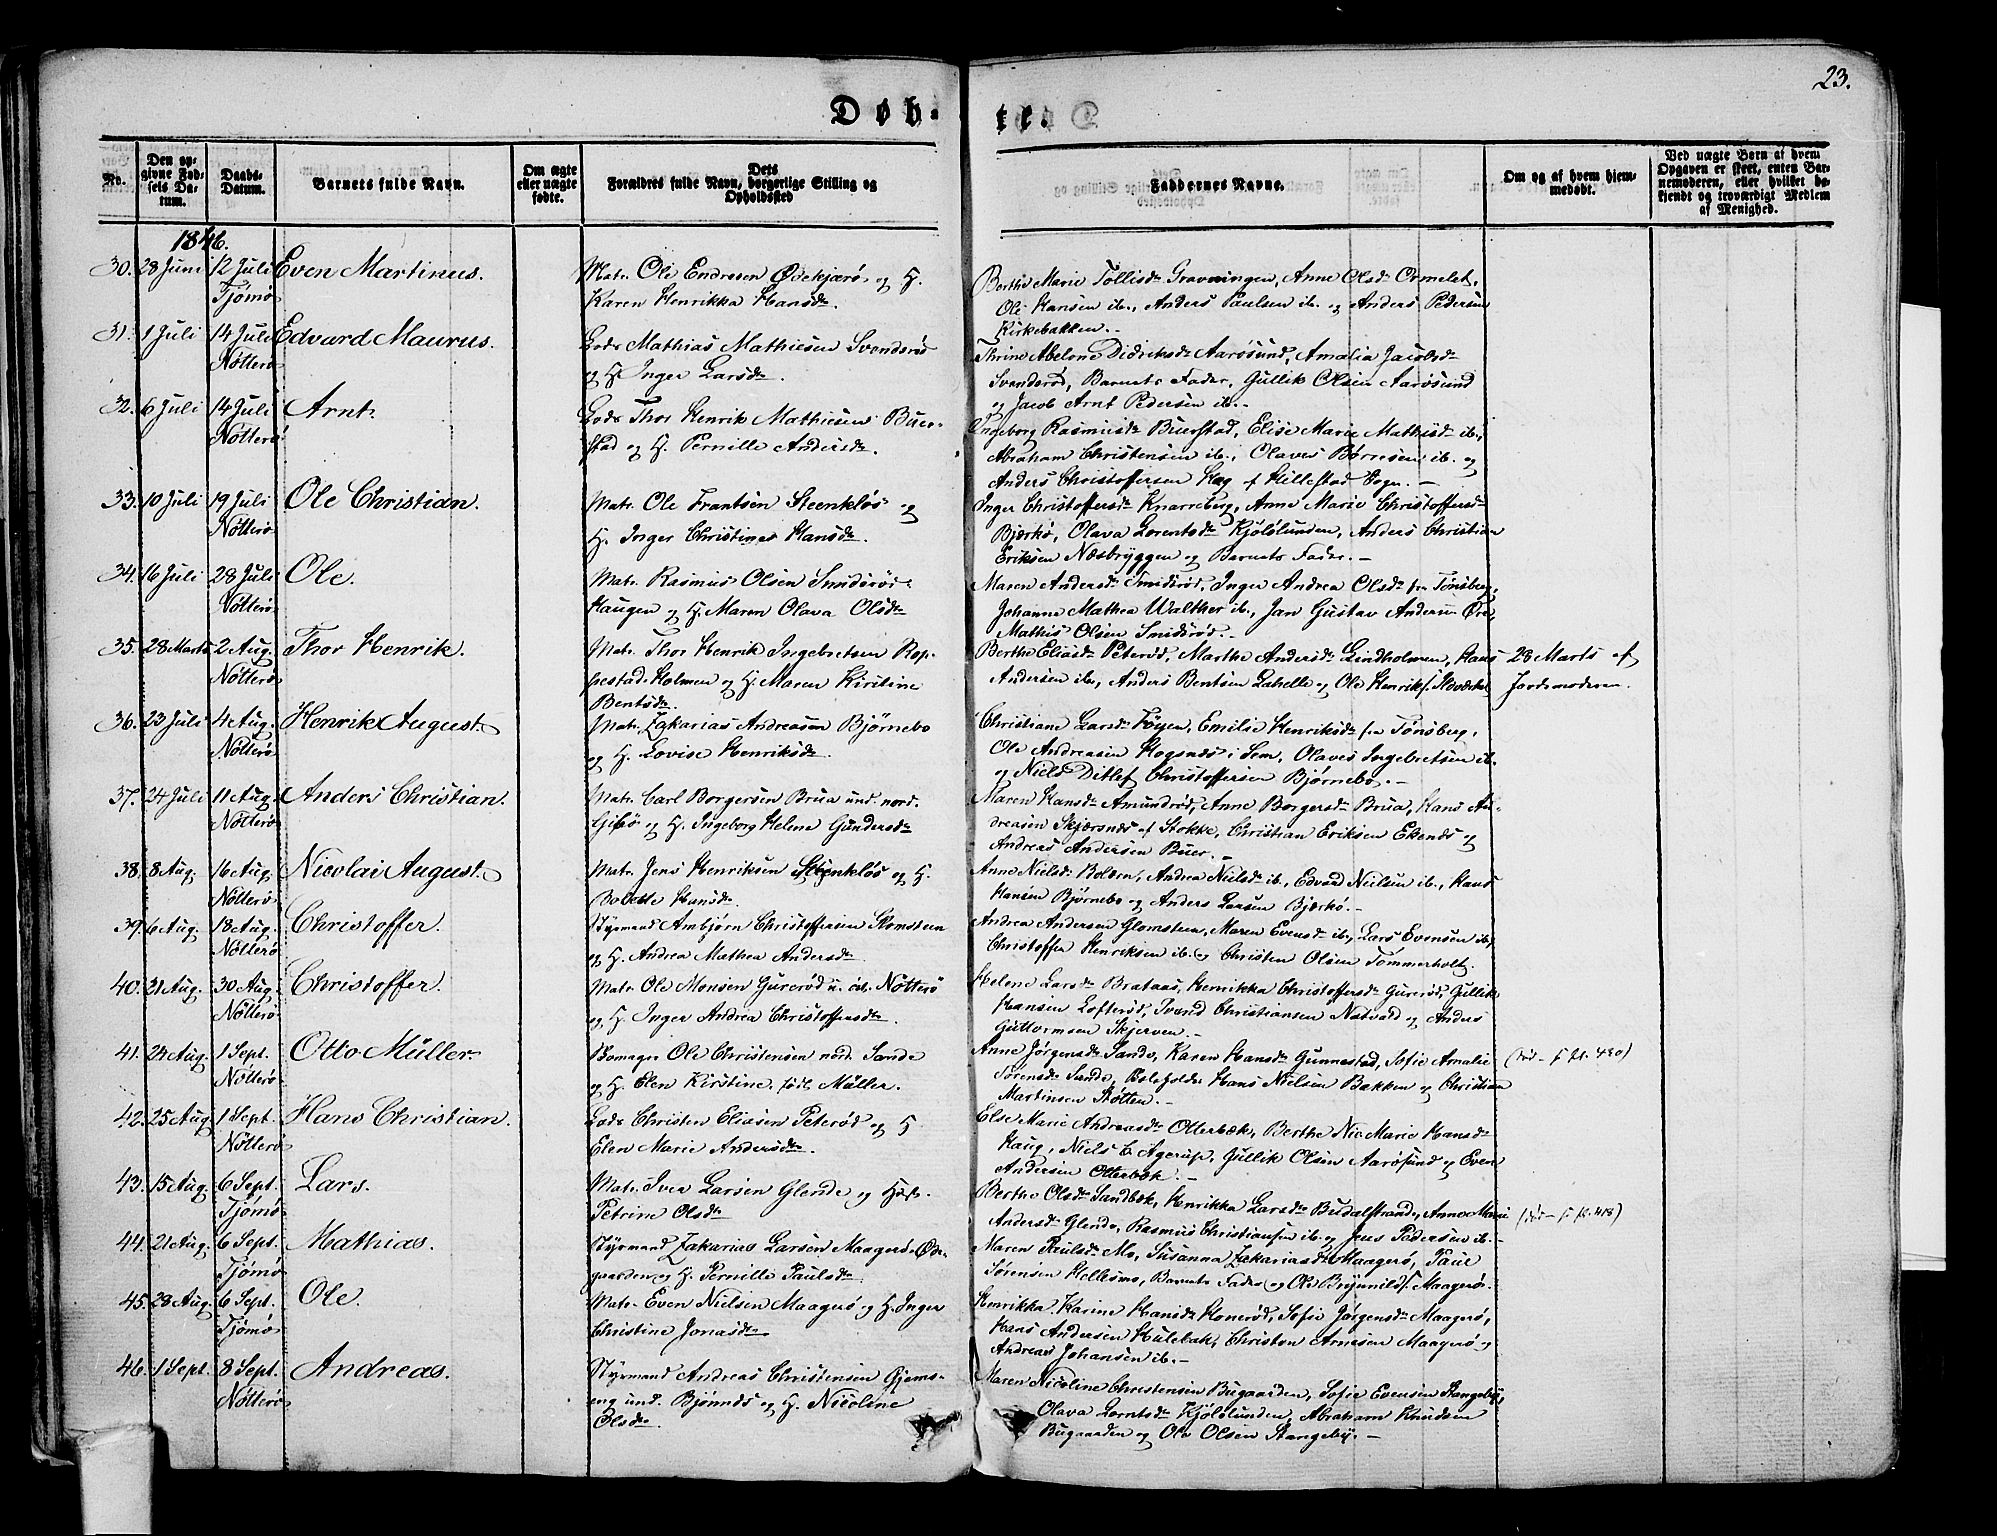 23.
Døb-
te.
No.
Den op-
givne Fød-
sels Da-
tum.
Daabs-
Datum.
Barnets fulde Navn.
Om ægte
eller uægte
fødte.
Dets
Forældres fulde Navn, borgerlige Stilling og
Opholdssted
Faddernes Navne.
Om og af hvem hjem-
medøbt.
Ved uægte Børn af hvem
Opgaven er skeet, enten Bar-
nemoderen, eller hvilket be-
kjendt og troværdigt Medlem
af Menighed.
1846.
30. 28 Juni 12 Juli Even Martinus. Matr. Ole Endresen Ødekjær og H.
Tjømø Karen Henrikka Hansdr.
Berthe Marie Tollisdr Gravningen, Anne Olsdr Ormelet,
Ole Hansen ib., Anders Paulsen ib. og Anders Pedersen
Kirkebakken.
31. 1 Juli 14 Juli Edvard Maurus. Lods Mathias Mathiesen Svenderød
Nøtterø og H. Inger Larsdr.
Thrine Abelone Didriksdr Aarøsund, Amalia Jacobsdr
Svenderød, Barnets Fader, Gullik Olsen Aarøsund
og Jacob Arnt Pedersen ib.
32. 6 Juli 14 Juli Arnt. Lods Thor Henrik Mathiesen Buer-
Nøtterø stad og H. Pernille Andersdr.
Ingeborg Rasmusdr Buerstad, Elise Marie Mathisdr ib.,
Abraham Christensen ib., Olaves Børresen ib. og
Anders Christoffersen Haug af Hillestad Sogn.
33. 10 Juli 19 Juli Ole Christian. Matr. Ole Frantsen Steenkløs og
Nøtterø H. Inger Christine Hansdr.
Inger Christoffersdr Knarreberg, Anne Marie Christoffersdr
Bjerkø, Olava Lorentsdr Kjølslunden, Anders Christian
Eriksen Næsbryggen og Barnets Fader.
34. 16 Juli 28 Juli Ole. Matr. Rasmus Olsen Smidsrød
Nøtterø Haugen og H. Maren Olava Olsdr
Maren Andersdr Smidsrød, Inger Andrea Olsdr fra Tønsberg,
Johanne Mathea Walther ib., Jan Gustav Andersen Øre,
Mathis Olsen Smidsrød.
35. 28 Marts 2 Aug. Thor Henrik. Matr. Thor Henrik Ingebretsen Rop-
Nøtterø pestad Holmen og H. Maren Kirstine
Bentsdr.
Berthe Eliasdr Peterød, Marthe Andersdr Lindholmen, Hans
Andersen ib., Anders Bentsen Lahelle og Ole Henriks.
28 Marts af
Jordemoderen.
36. 23 Juli 4 Aug. Henrik August. Matr. Zakarias Andreasen Bjørnebo
Nøtterø og H. Lovise Henriksdr.
Christiane Larsdr Føyen, Emilie Henriksdr fra Tønsberg,
Ole Andreasen Hogsnes i Sem, Olaves Ingebretsen ib.
og Niels Ditlef Christoffersen Bjørnebo.
37. 24 Juli 11 Aug. Anders Christian. Matr. Carl Borgersen Brua und. nord.
Nøtterø Gipø og H. Ingeborg Helene Gundersdr
Maren Hansdr Amundrød, Anne Borgersdr Brua, Hans An-
dreasen Skjærsnes af Stokke, Christian Eriksen Ekenes og
Andreas Andersen Buer.
38. 8 Aug. 16 Aug. Nicolai August. Matr. Jens Henriksen Steenkløs og H.
Nøtterø Bolette Hansdr.
Anne Nielsdr Bolærn, Andrea Nielsdr ib., Edvard Nielsen ib., Hans
Hansen Bjørnebo og Anders Larsen Bjerkø.
39. 6 Aug. 18 Aug. Christoffer. Styrmand Ambjørn Christoffersen Glomsteen
Nøtterø og H. Andrea Mathea Andersdr.
Andrea Andersen Glomsteen, Maren Evensdr ib., Lars Evensen ib.,
Christoffer Henriksen ib. og Christen Olsen Tømmerholt.
40. 21 Aug. 30 Aug. Christoffer. Matr. Ole Monsen Gurerød u. øst. Nøtterø
Nøtterø og H. Inger Andrea Christoffersdr.
Helene Larsdr Brataas, Henrikka Christoffersdr Gurerød, Gullik
Hansen Lofterød, Svend Christiansen Natvald og Anders
Guttormsen Skjerven.
41. 24 Aug. 1 Sept. Otto Müller Skomager Ole Christensen nord. Sande
Nøtterø og H. Elen Kirstine, født Müller.
Anne Jørgensdr Sande, Karen Hansdr Gunnestad, Sofie Amalie
Sørensdr Sande, Hans Nielsen Bakken og Christian
Martinsen Støtten.
42. 25 Aug. 1 Sept. Hans Christian. Lods Christen Eliasen Peterød og H
Nøtterø Elen Marie Andersdr.
Else Marie Andreasdr Otterbæk, Berthe Marie Hansdr
Haug, Niels B. Agerup, Gullik Olsen Aarøsund og Even
Andersen Otterbæk.
43. 15 Aug. 6 Sept. Lars. Matr. Iver Larsen Glende og H.
Tjømø Petrine Olsdr
Berthe Olsdr Sandbæk, Henrikka Larsdr Budalstrand, Anne Marie
Andersdr Glende, Rasmus Christiansen ib. og Jens Pedersen ib.
44. 21 Aug. 6 Sept. Mathias. Styrmand Zakarias Larsen Maagerø Øde-
Tjømø gaarden og H. Pernille Paulsdr
Maren Paulsdr Mo, Susanna Zakariasdr Maagerø, Paul
Sørensen Hellesmo, Barnets Fader og Ole Brynnilds. Maagerø.
45. 28 Aug. 6 Sept. Ole. Matr. Even Nielsen Maagerø og H. Inger
Tjømø Christine Jonasdr
Henrikka Karine Hansdr Honerød, Sofie Jørgensdr Maagerø,
Hans Andersen Hulebak, Christen Arnesen Maagerø og
Andreas Johansen ib.
46. 1 Sept. 8 Sept. Andreas. Styrmand Andreas Christensen Gjems-
Nøtterø eng und. Bjønnes og H. Nicoline
Olsdr
Maren Nicoline Christensen Bugaarden, Sofie Evensen Stangeby,
Olava Lorntsdr Kjølslunden, Abraham Knudsen
Bugaarden og Ole Olsen Stangeby.